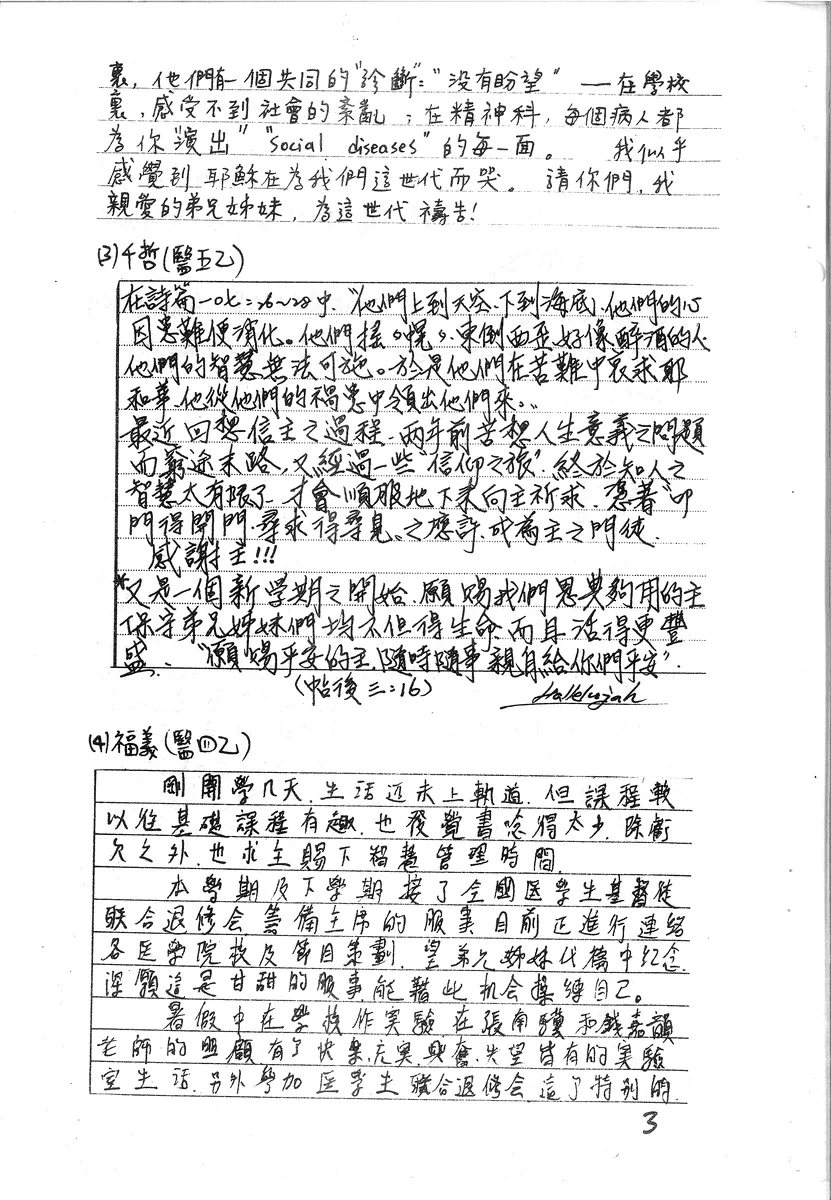 裏，他們有一個共同的"診斷"："沒有盼望" — 在學校
裏，感受不到社會的紊亂；在精神科，每個病人都
為你"演出" "social diseases"的每一面。 我似乎
感覺到 耶穌在為我們這世代而哭。 請你們，我
親愛的弟兄姊妹，為這世代禱告！
(3)千哲(醫五乙)
在詩篇一〇七：26~28中，"他們上到天空，下到海底，他們的心
因患難便消化。他們搖搖幌幌，東倒西歪，好像醉酒的人
他們的智慧無法可施。於是他們在苦難中哀求耶
和華，他從他們的禍患中領出他們來。"
最近回想信主之過程，兩年前苦想人生意義之問題
而窮途末路，又經過一些"信仰之旅"，終於知人之
智慧太有限了，才會順服地下來向主祈求，憑著"叩
門得開門，尋求得尋見"之應許，成為主之門徒，
感謝主!!!
*又是一個新學期之開始，願賜我們恩典夠用的主
保守弟兄姊妹們均不但得生命，而且活得更豐
盛，"願賜平安的主，隨時隨事親自給你們平安"，
(帖後三：16) Hallelujah
(4)福義(醫四乙)
剛開學几天，生活近未上軌道，但課程較
以往基礎課程有趣，也發覺書唸得太少，除虧
欠之外，也求主賜下智慧管理時間，
本學期及下學期接了全國医學生基督徒
聯合退修会籌備主席的服事，目前正進行連絡
各医學院校及節目策劃，望弟兄姊妹代禱中紀念，
深願這是甘甜的服事，能藉此机会操練自己。
暑假中在學校作實驗，在張南驥和錢嘉韻
老師的照顧有了快樂，充実，興奮，失望皆有的実驗
室生活，另外參加医學生聯合退修会，這了特别的
3